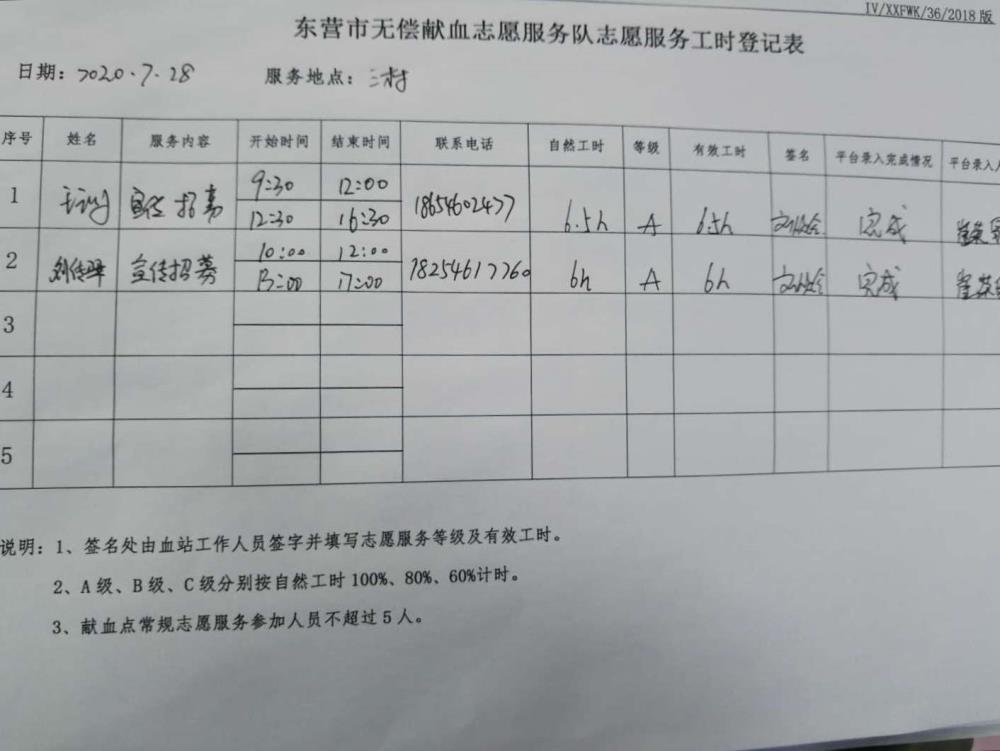 IV/XXFWK/36/2018版
东营市无偿献血志愿服务队志愿服务工时登记表
日期：2020.7.28 服务地点：
序号 姓名 服务内容 开始时间 结束时间 联系电话 自然工时 等级 有效工时 签名 平台录入完成情况 平台录入人
1 宣传招募 9:30 12:00 18654602477 6.5h A 6.5h 完成
12:30 16:30
2 宣传招募 10:00 12:00 18254617760 6h A 6h 完成
13:00 17:00
3
4
5
说明：1、签名处由血站工作人员签字并填写志愿服务等级及有效工时。
2、A级、B级、C级分别按自然工时100%、80%、60%计时。
3、献血点常规志愿服务参加人员不超过5人。